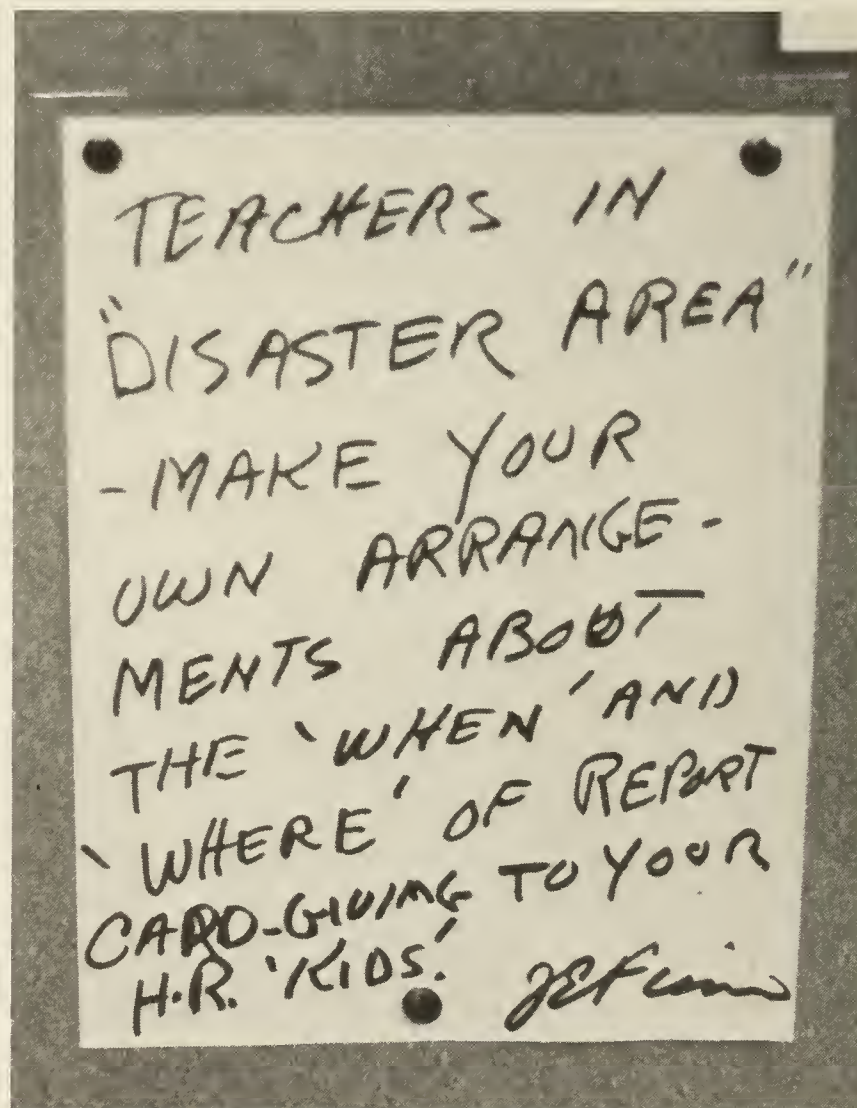 TEACHERS IN
"DISASTER AREA"
- MAKE YOUR
OWN ARRANGE-
MENTS ABOUT
THE 'WHEN' AND
'WHERE' OF REPORT
CARD-GIVING TO YOUR
H.R. 'KIDS'.